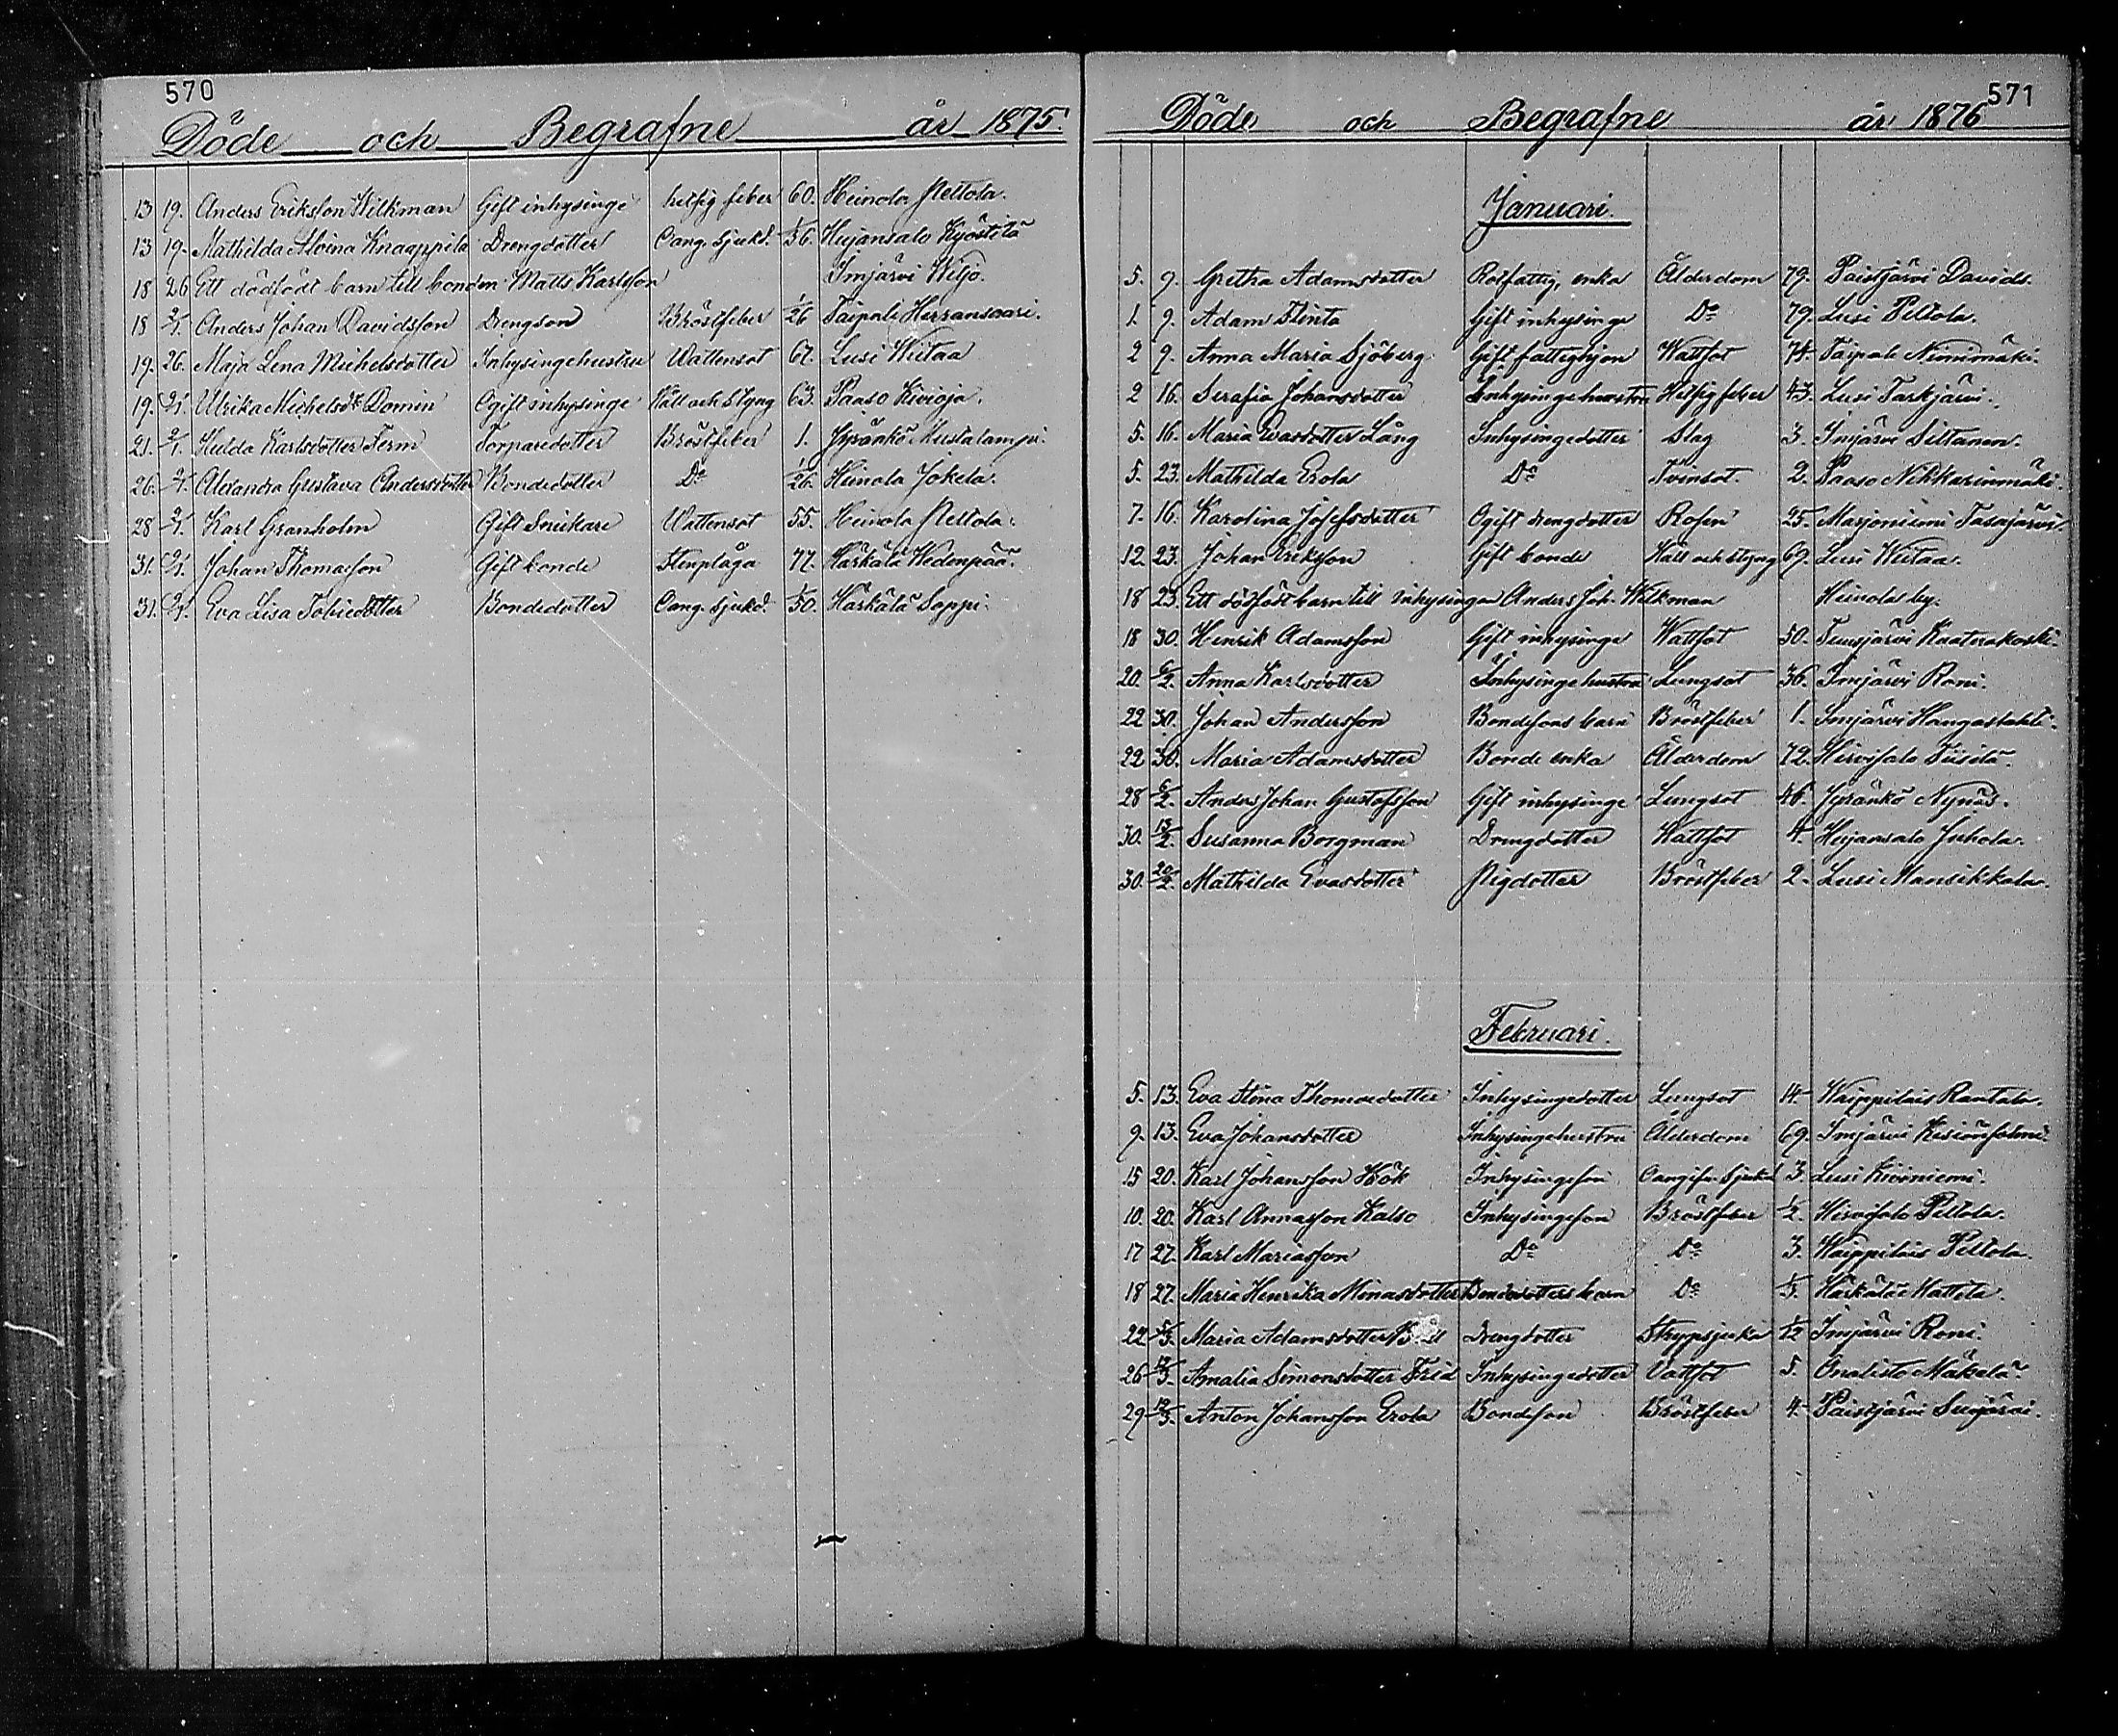 570
Döde och Begrafne år 1875.
13 19. Anders Eriksson Wilkman Gift inhysinge hetsig feber 60. Heinola Peltola.
13 19. Mathilda Alvina Knaappila Drengdotter Oang. Sjukd. 1/36. Hujansalo Kyöstilä
18 26 Ett dödfödt barn till bonden Matts Karlsson Imjärvi Wiljo.
18 2/1. Anders Johan Davidsson Drengson Bröstfeber 1/26 Taipale Herransaari.
19. 26. Maja Lena Michelsdotter Inhysingehustru Wattensot 67. Lusi Wiitaa
19. 2/1. Ulrika Michelsdr Domin Ogift inhysinge Håll och Styng 63. Paaso Kivioja.
21. 2/1. Hilda Karlsdotter Ferm Torparedotter Bröstfeber 1. Jyränkö Mustalampi.
26. 2/1. Alexandra Gustava Andersdotter Bondedotter Do 1/26. Heinola Jokela.
28 2/1. Karl Granholm Gift Snickare Wattensot 55. Heinola Peltola.
31. 2/1. Johan Thomasson Gift bonde Stenplåga 77. Härkälä Wedenpää.
31. 2/1. Eva Lisa Tobiedotter Bondedotter Oang. Sjukd. 1/50. Härkälä Seppi.
571
Döde och Begrafne år 1876
Januari.
5. 9. Gretha Adamsdotter Rotfattig, enka Ålderdom 79. Paistjärvi Davids.
1. 9. Adam Flinta Gift inhysinge Do 79. Lusi Peltola.
2 9. Anna Maria Sjöberg Gift fattighjon Wattsot 74. Taipale Niinimäki.
2 16. Serafia Johansdotter Inhysingehustru Hetsig feber 43. Lusi Tarkjärvi.
5. 16. Maria Evasdotter Lång Inhysingedotter Slag 3. Imjärvi Siltanen.
5. 23. Mathilda Erola Do Tvinsot. 2. Paaso Nikkarinmäki.
7. 16. Karolina Josefsdotter Ogift drengdotter Rosen 25. Marjoniemi Tasajärvi.
12. 23. Johan Eriksson Gift bonde Håll och Styng 69. Lusi Wiitaa.
18 23. Ett dödfödt barn till inhysingen Anders Joh. Wilkman Heinola by.
18 30. Henrik Adamsson Gift inhysinge Wattsot 50.
20. 6/2. Anna Karlsdotter Inhysingehustru Lungsot 36. Imjärvi Roni.
22 30. Johan Andersson Bondesons barn Bröstfeber 1. Imjärvi Hangastahti.
22 30. Maria Adamsdotter Bonde enka Ålderdom 72. Hirvisalo Tiisilä.
28 6/2. Anders Johan Gustafsson Gift inhysinge Lungsot 46. Jyränkö Nynäs.
30. 13/2. Susanna Borgman Drengdotter Wattsot 4. Hujansalo Juhola.
30. 20/2. Mathilda Evasdotter Pigdotter Bröstfeber 2. Lusi Mansikkala.
Februari.
5. 13. Eva Stina Thomasdotter Inhysingedotter Lungsot 14 Waippilais Rantala.
9. 13. Eva Johansdotter Inhysingehustru Ålderdom 69. Imjärvi
15 20. Karl Johansson Hök Inhysingeson Oangifn. Sjukd 3. Lusi Kiviniemi.
10. 20. Karl Annasson Kalso Inhysingeson Bröstfeber 1/2. Hirvisalo Peltola.
17 27. Karl Mariasson Do Do 3. Waippilais Peltola.
18 27. Maria Henrika Minasdotter Bondedotters barn Do 1/3. Härkälä Mattila.
22 5/3. Maria Adamsdotter Drengdotter Strypsjuka 1/12 Imjärvi Roni.
26 12/3. Amalia Simonsdotter Frid Inhysingedotter Vattsot 5. Onalisto Mäkelä.
29 12/3. Anton Johansson Erola Bondeson Bröstfeber 4. Paistjärvi Suujärvi.